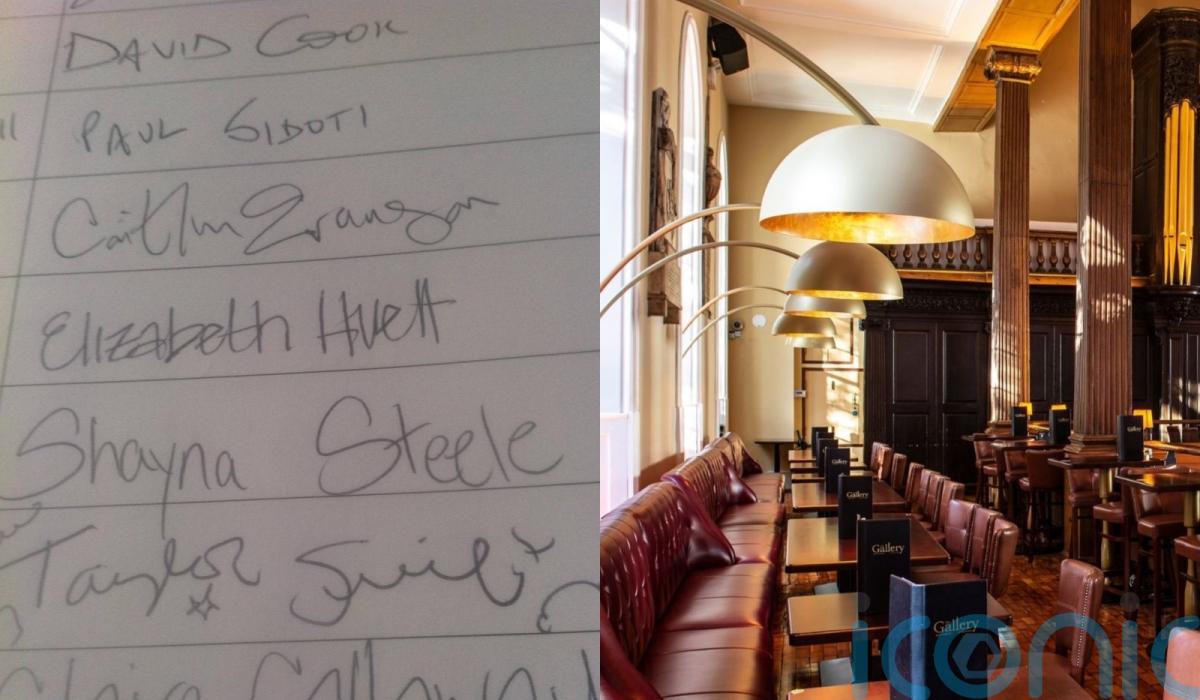 DAVID COOK
PAUL SIDOTI
Caitlin Evanson
Elizabeth Huett
Shayna Steele
Taylor Swift
Gallery
Gallery
Gallery
Gallery
Gallery
iconic